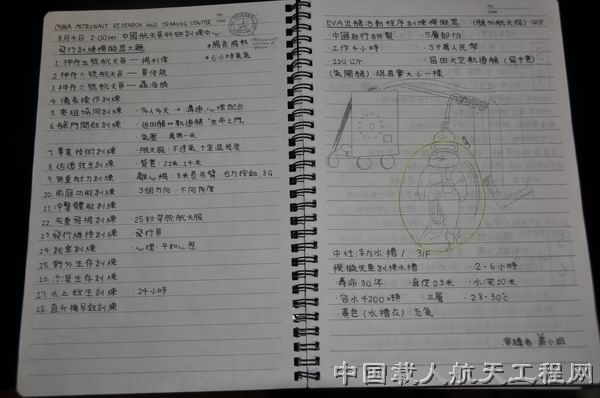 CHINA ASTRONAUT RESEARCH AND TRAINING CENTER
8月4日 2:00 pm 中國航天員科研訓練中心
飛行訓練模擬器大廳
1. 神舟五號航天員 — 楊利偉
2. 神舟六號航天員 — 費俊龍
3. 神舟六號航天員 — 聶海勝
*6小時氧氣
4. 儀表操作訓練
5. 乘組協同訓練 ·多人多天 → 溝通、心理配合
6. 艙門開啟訓練 ·返回艙↔軌道艙 "生命之門"
氣壓 萬無一失
7. 專業技術訓練 ·航天服:不透氣↑室溫濕度
8. 逃逸救生訓練
9. 超重耐力訓練 離心機:8米長吊臂 8G
10. 前庭功能訓練 ·3個方向 不同角度
11. 沖擊體能訓練
12. 失重飛機訓練 ·25秒穿脫航天服
13. 飛行維持訓練 ·飛行員
14. 跳傘訓練 ·心理:平和心態
15. 野外生存訓練
16. 沙漠生存訓練
17. 水上救生訓練 ·24小時
18. 直升機吊救訓練
EVA出艙活動程序訓練模擬器 (艙外航天服) G/F
中國自行研製 ·5層部份
工作4小時 ·3千萬人民幣
120公斤 ·留田天空軌道艙 (留手套)
(氣閘艙) 跟真實大小一樣
中性浮力水槽 / 3/F
模擬失重訓練水槽 ·2-6小時
·壽命30年 ·直徑23米 ·水深10米
·容水4200噸 ·三層 ·28-30℃
黃色 (水槽衣):充氣
蕭小姐
中国载人航天工程网